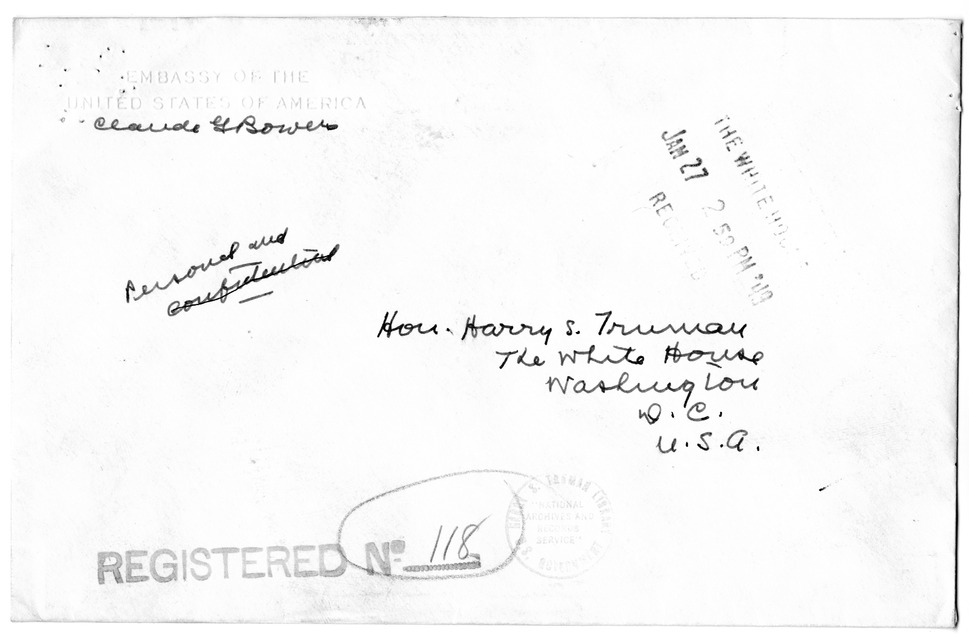 EMBASSY OF THE
UNITED STATES OF AMERICA
Claude G Bowers
THE WHITE HOUSE
JAN 27 2 59 PM '49
RECEIVED
Personal and
confidential
Hon. Harry S. Truman
The White House
Washington
D. C.
U. S. A.
REGISTERED Nº 118
HARRY S. TRUMAN LIBRARY
"NATIONAL
ARCHIVES AND
RECORDS
SERVICE"